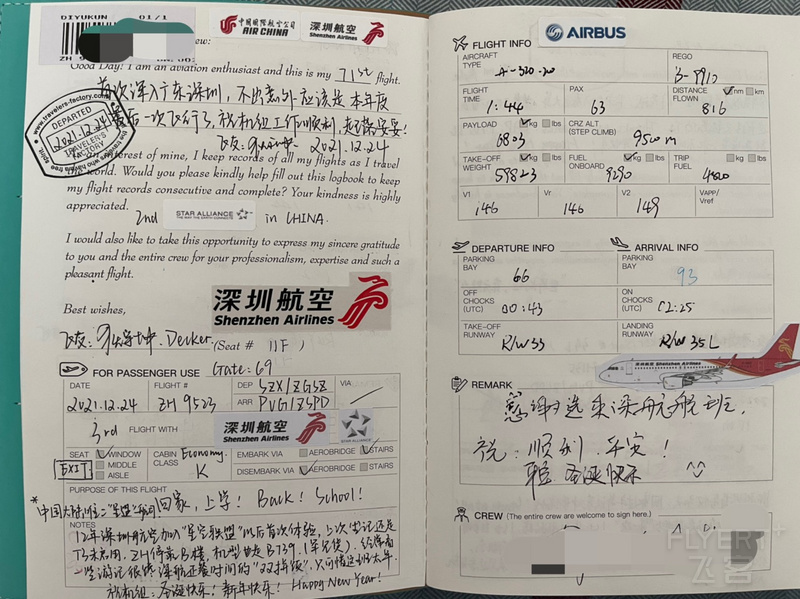 DIYUKUN 01/1
ZH 9
中国国际航空公司
AIR CHINA
深圳航空
Shenzhen Airlines
Good Day! I am an aviation enthusiast and this is my 71st flight.
首次深入广东深圳，不出意外应该是本年度
最后一次飞行了，祝机组工作顺利，起落安妥！
飞友: 2021.12.24
www.travelers-factory.com
DEPARTED
2021.12.24
TRAVELER'S FACTORY
interest of mine, I keep records of all my flights as I travel
world. Would you please kindly help fill out this logbook to keep
my flight records consecutive and complete? Your kindness is highly
appreciated.
2nd STAR ALLIANCE in CHINA.
I would also like to take this opportunity to express my sincere gratitude
to you and the entire crew for your professionalism, expertise and such a
pleasant flight.
Best wishes,
深圳航空
Shenzhen Airlines
飞友: Decker. (Seat # 11F )
Gate: 69
FOR PASSENGER USE
DATE 2021.12.24
FLIGHT # ZH 9523
DEP SZX/ZGSZ
ARR PVG/ZSPD
VIA
3rd FLIGHT WITH 深圳航空 Shenzhen Airlines STAR ALLIANCE
SEAT WINDOW MIDDLE AISLE
EXIT
CABIN CLASS Economy. K
EMBARK VIA AEROBRIDGE STAIRS
DISEMBARK VIA AEROBRIDGE STAIRS
PURPOSE OF THIS FLIGHT
回家，上学！ Back! School!
NOTES
12年深圳航空加入"星空联盟"以后首次体验，上次坐记还是
T3未启用，ZH停靠B楼，机型也是B739.
祝机组: 圣诞快乐！新年快乐！Happy New Year!
AIRBUS
FLIGHT INFO
AIRCRAFT TYPE A-320-20
REGO B-9910
FLIGHT TIME 1:44
PAX 63
DISTANCE FLOWN nm km 816
PAYLOAD kg lbs 6803
CRZ ALT (STEP CLIMB) 9500m
TAKE-OFF WEIGHT kg lbs 59823
FUEL ONBOARD kg lbs 9290
TRIP FUEL kg lbs
V1 146
Vr 146
V2 149
VAPP/ Vref
DEPARTURE INFO
ARRIVAL INFO
PARKING BAY 66
PARKING BAY 93
OFF CHOCKS (UTC) 00:43
ON CHOCKS (UTC) 02:25
TAKE-OFF RUNWAY R/W 33
LANDING RUNWAY R/W 35L
Shenzhen Airlines
REMARK
感谢选乘深航航班,
祝: 顺利 平安！
圣诞快乐
CREW (The entire crew are welcome to sign here.)
FLYERT
飞客